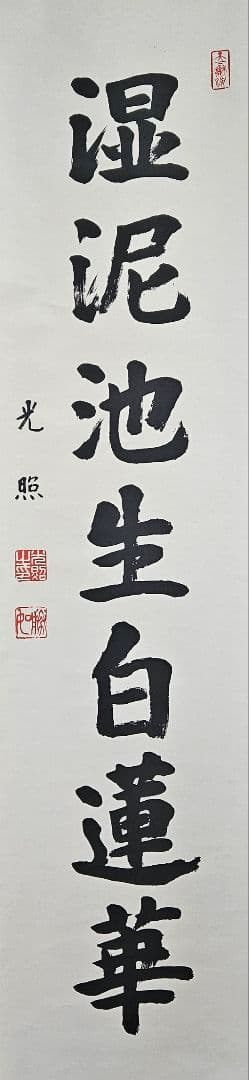 湿泥池生白蓮華
光照